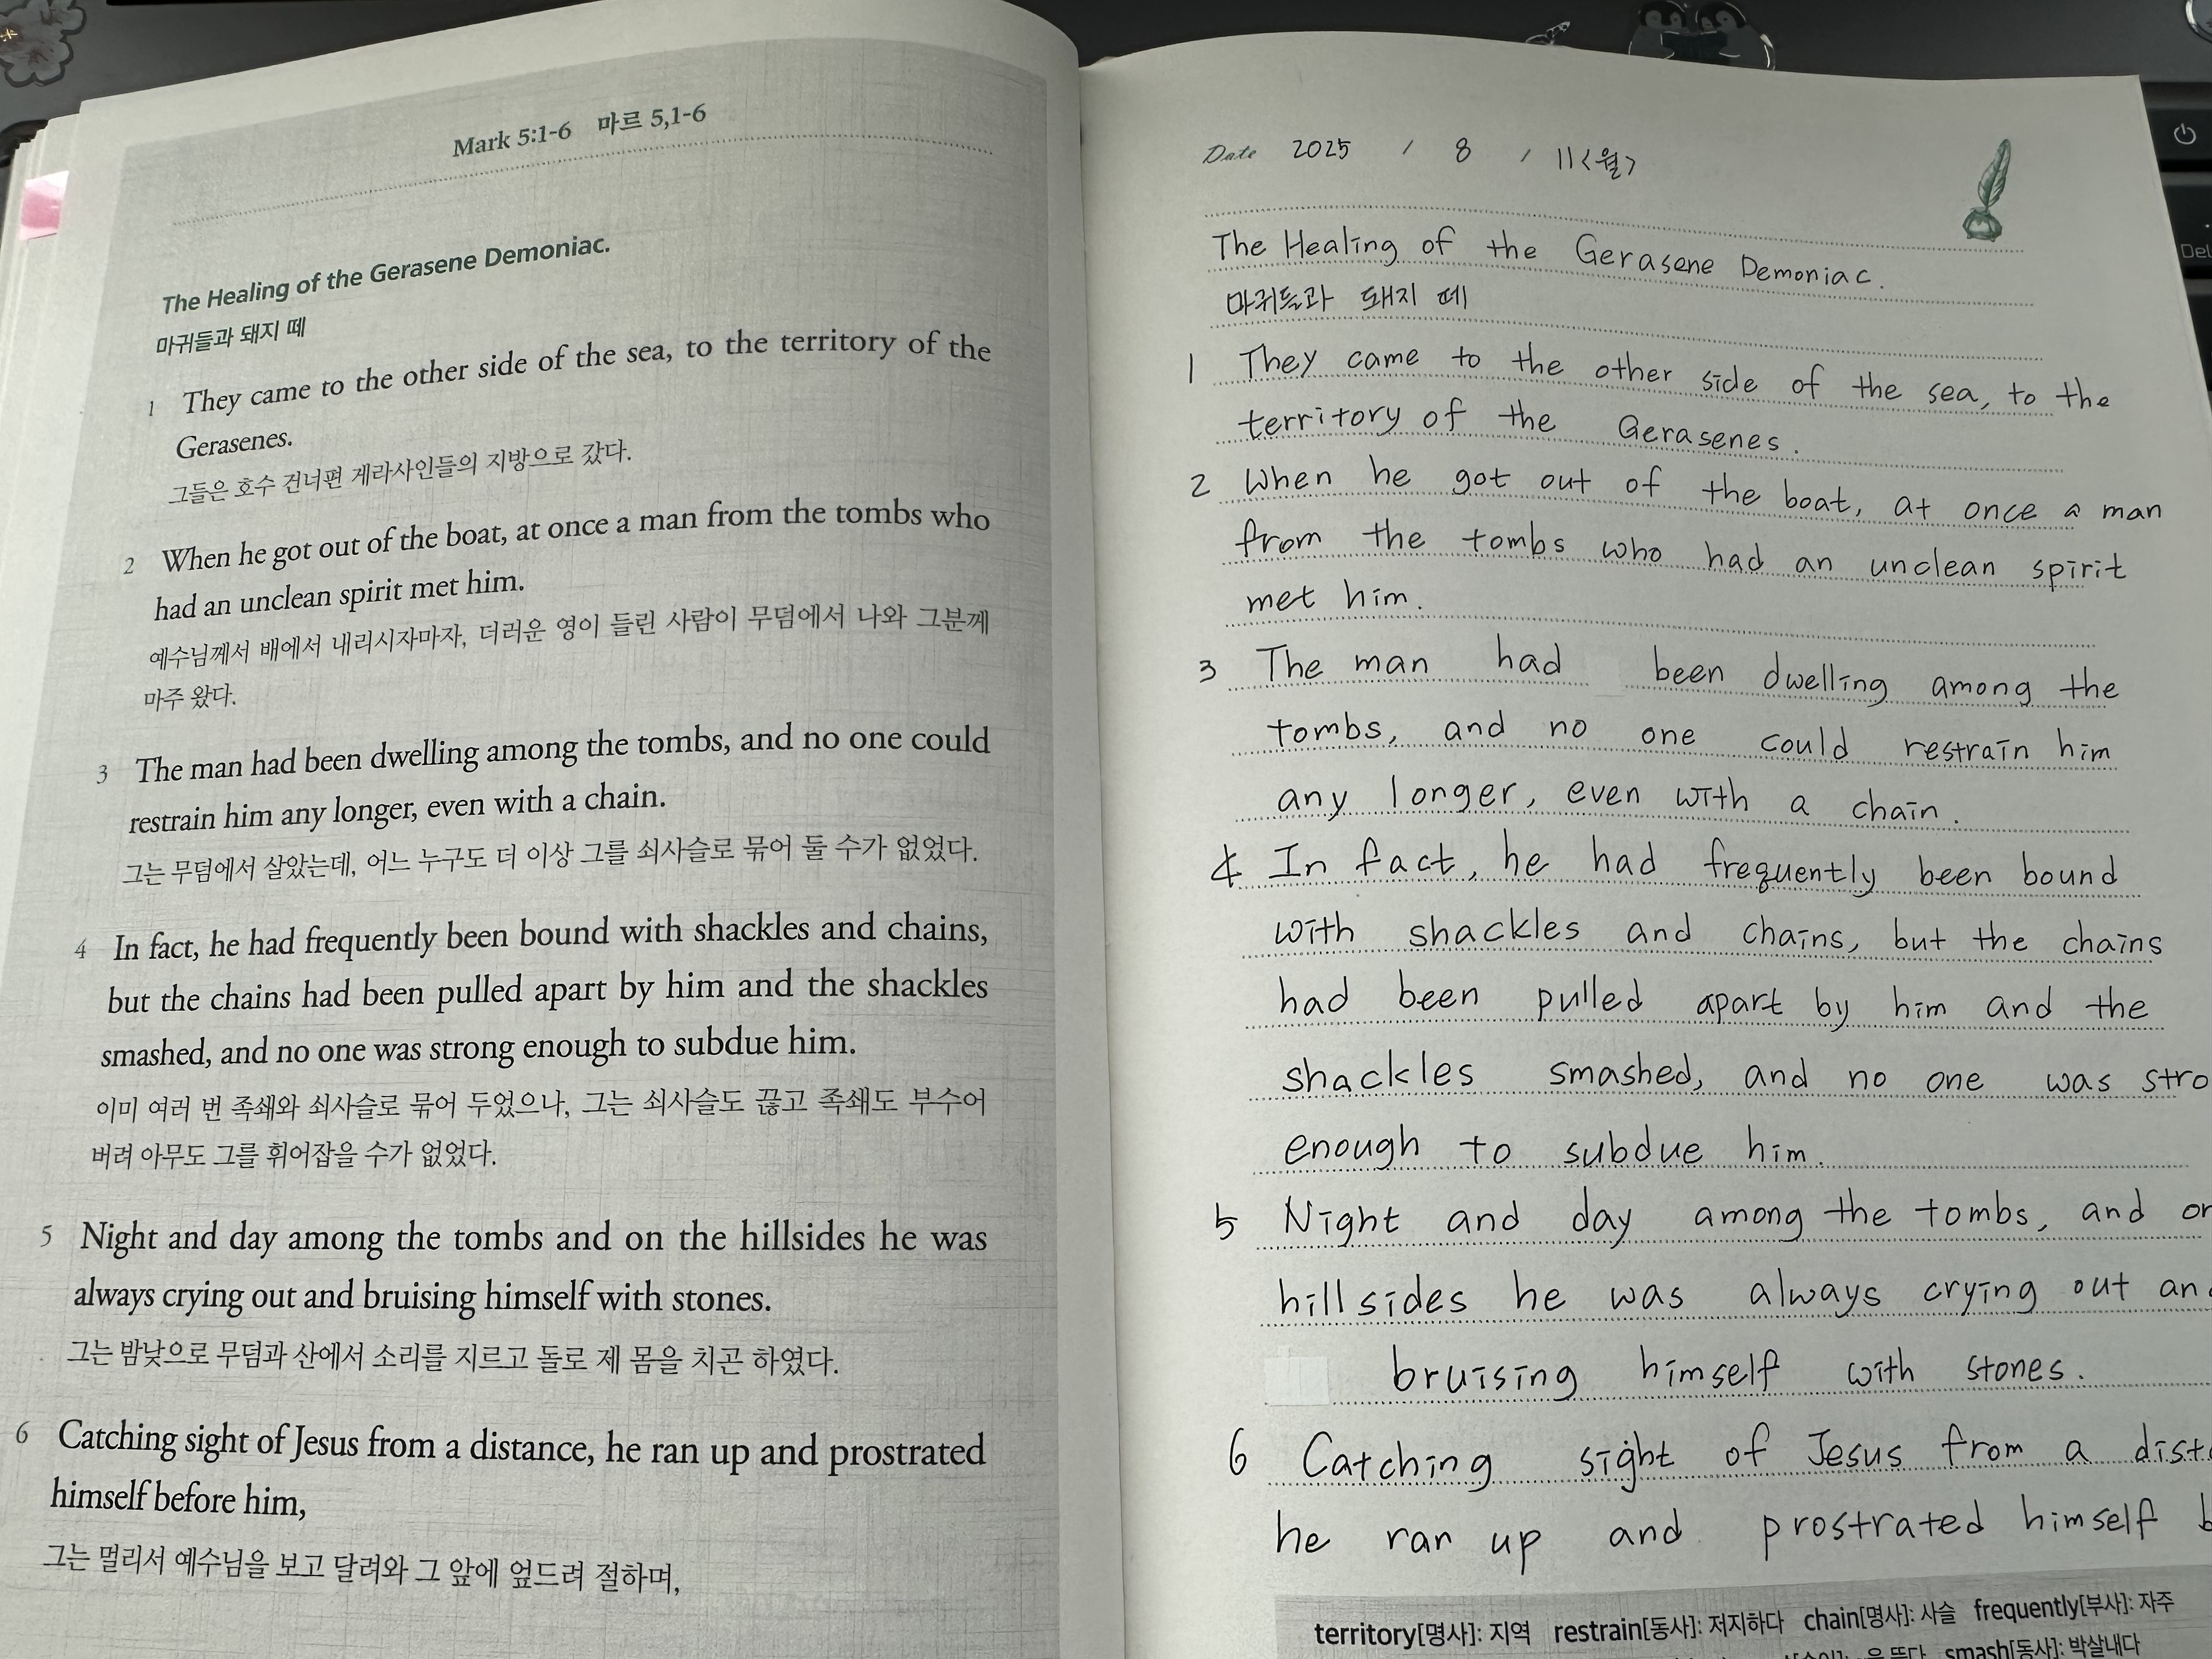 Mark 5:1-6 마르 5,1-6
The Healing of the Gerasene Demoniac.
마귀들과 돼지 떼
1 They came to the other side of the sea, to the territory of the
Gerasenes.
그들은 호수 건너편 게라사인들의 지방으로 갔다.
2 When he got out of the boat, at once a man from the tombs who
had an unclean spirit met him.
예수님께서 배에서 내리시자마자, 더러운 영이 들린 사람이 무덤에서 나와 그분께
마주 왔다.
3 The man had been dwelling among the tombs, and no one could
restrain him any longer, even with a chain.
그는 무덤에서 살았는데, 어느 누구도 더 이상 그를 쇠사슬로 묶어 둘 수가 없었다.
4 In fact, he had frequently been bound with shackles and chains,
but the chains had been pulled apart by him and the shackles
smashed, and no one was strong enough to subdue him.
이미 여러 번 족쇄와 쇠사슬로 묶어 두었으나, 그는 쇠사슬도 끊고 족쇄도 부수어
버려 아무도 그를 휘어잡을 수가 없었다.
5 Night and day among the tombs and on the hillsides he was
always crying out and bruising himself with stones.
그는 밤낮으로 무덤과 산에서 소리를 지르고 돌로 제 몸을 치곤 하였다.
6 Catching sight of Jesus from a distance, he ran up and prostrated
himself before him,
그는 멀리서 예수님을 보고 달려와 그 앞에 엎드려 절하며,
Date 2025 / 8 / 11<월>
The Healing of the Gerasene Demoniac.
마귀들과 돼지 떼
1 They came to the other side of the sea, to the
territory of the Gerasenes.
2 When he got out of the boat, at once a man
from the tombs who had an unclean spirit
met him.
3 The man had been dwelling among the
tombs, and no one could restrain him
any longer, even with a chain.
4 In fact, he had frequently been bound
with shackles and chains, but the chains
had been pulled apart by him and the
shackles smashed, and no one was stro
enough to subdue him.
5 Night and day among the tombs, and on
hillsides he was always crying out an
bruising himself with stones.
6 Catching sight of Jesus from a dist
he ran up and prostrated himself b
territory[명사]: 지역 restrain[동사]: 저지하다 chain[명사]: 사슬 frequently[부사]: 자주
smash[동사]: 박살내다
Del